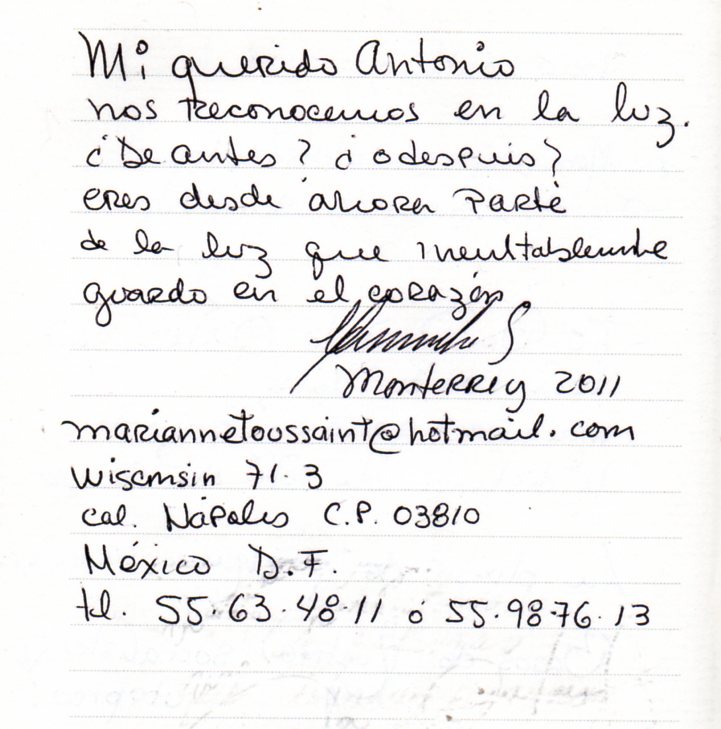 Mi querido Antonio
nos reconocemos en la luz.
¿De antes? ¿o después?
eres desde ahora parte
de la luz que inevitablemente
guardo en el corazón
Monterrey 2011
mariannetoussaint@hotmail.com
Wisconsin 71-3
col. Nápoles C.P. 03810
México D.F.
tel. 55-63-48-11 ó 55-98-76-13